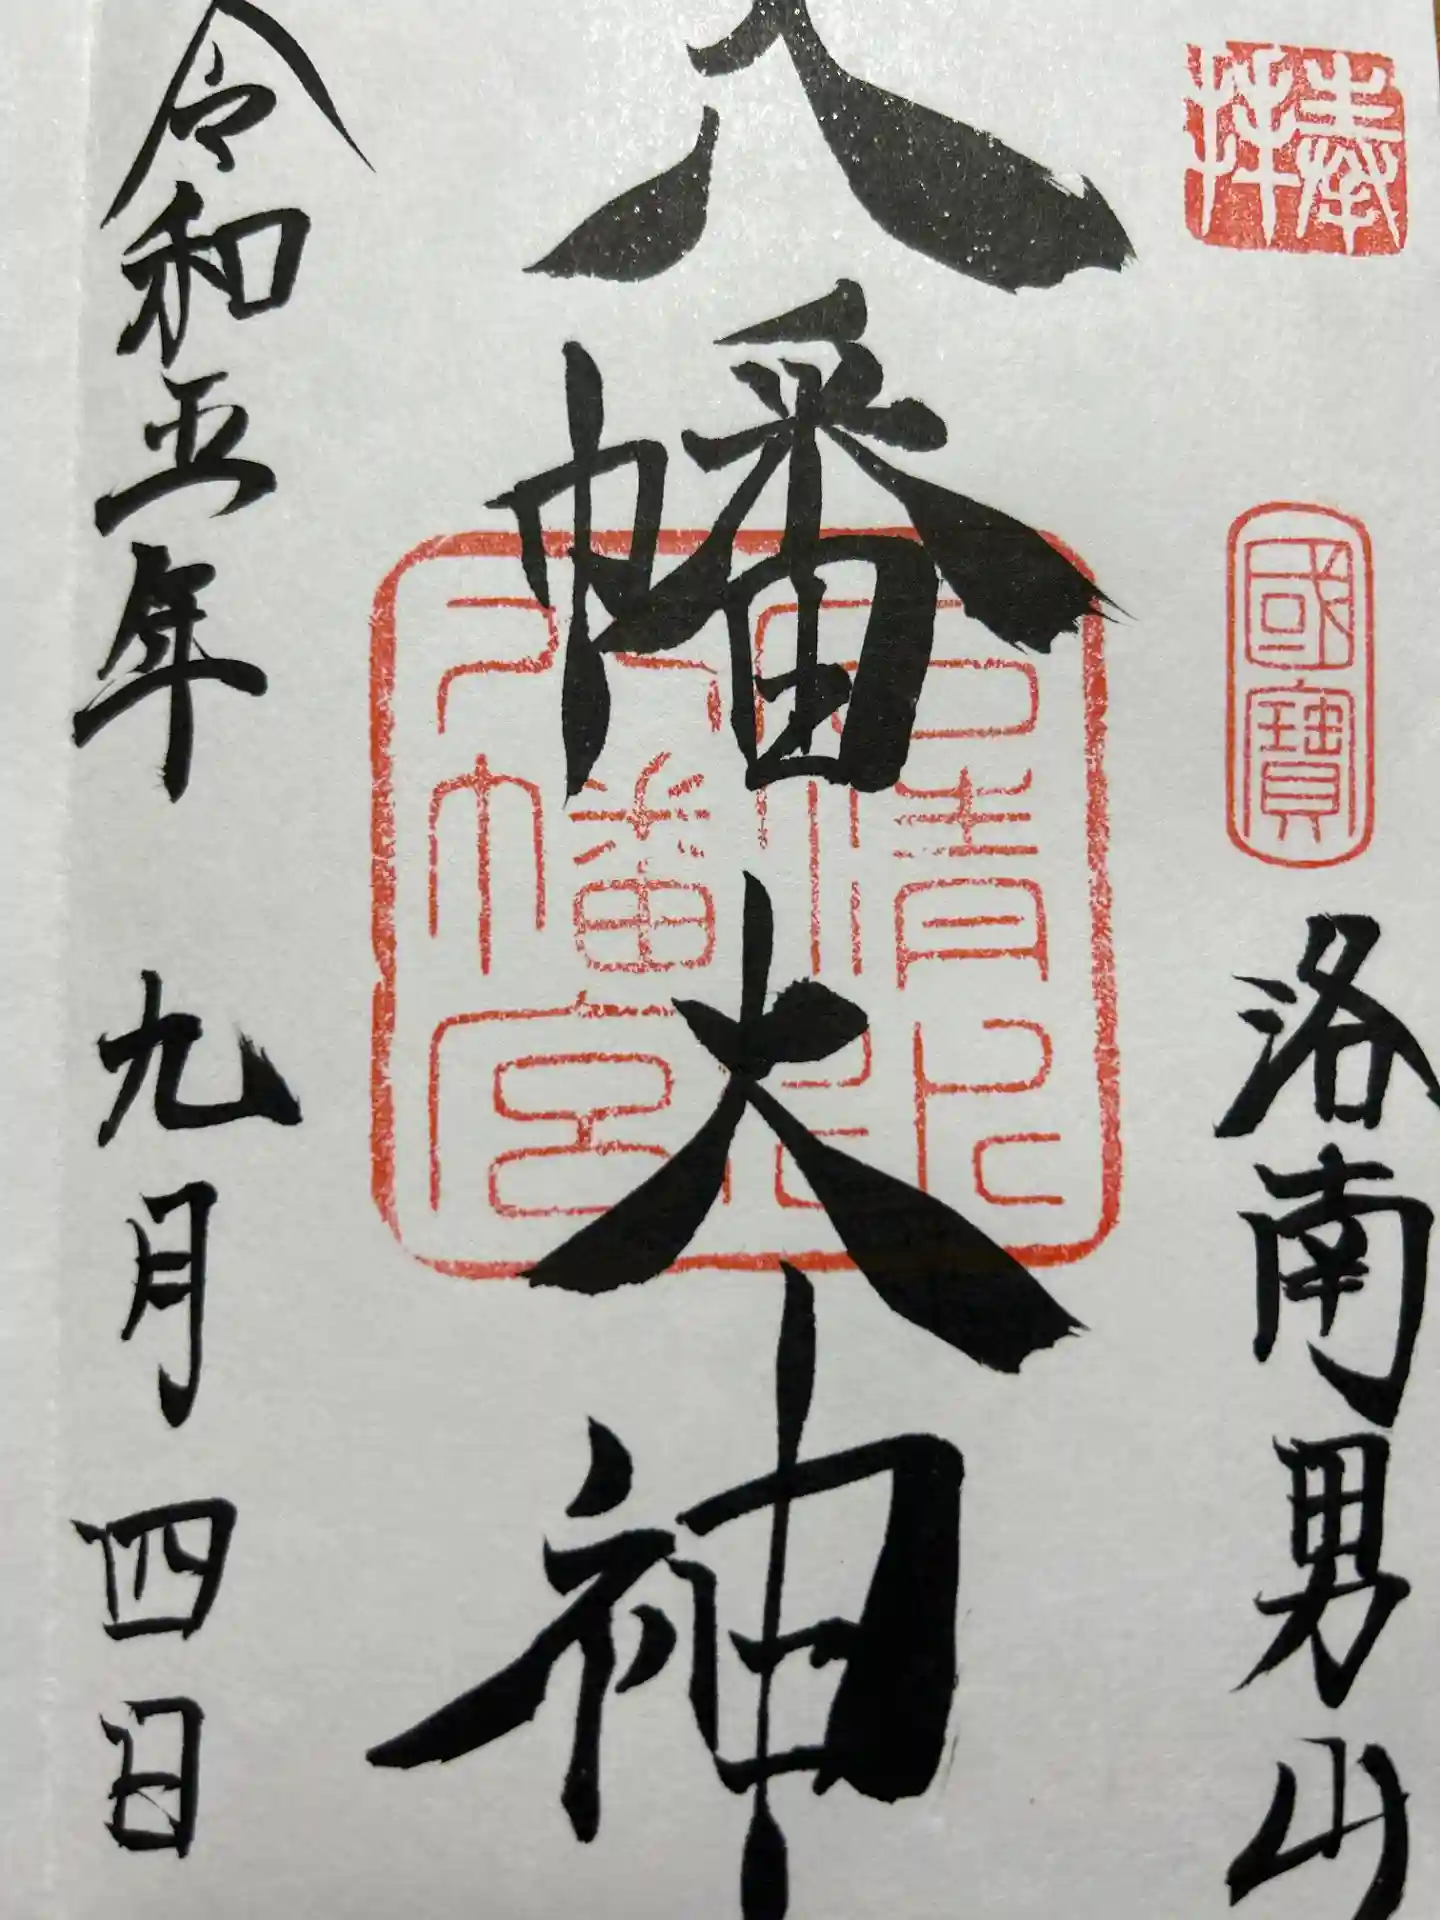 奉拝
國寶
洛南男山
八幡大神
石清水
八幡宮
令和五年 九月四日